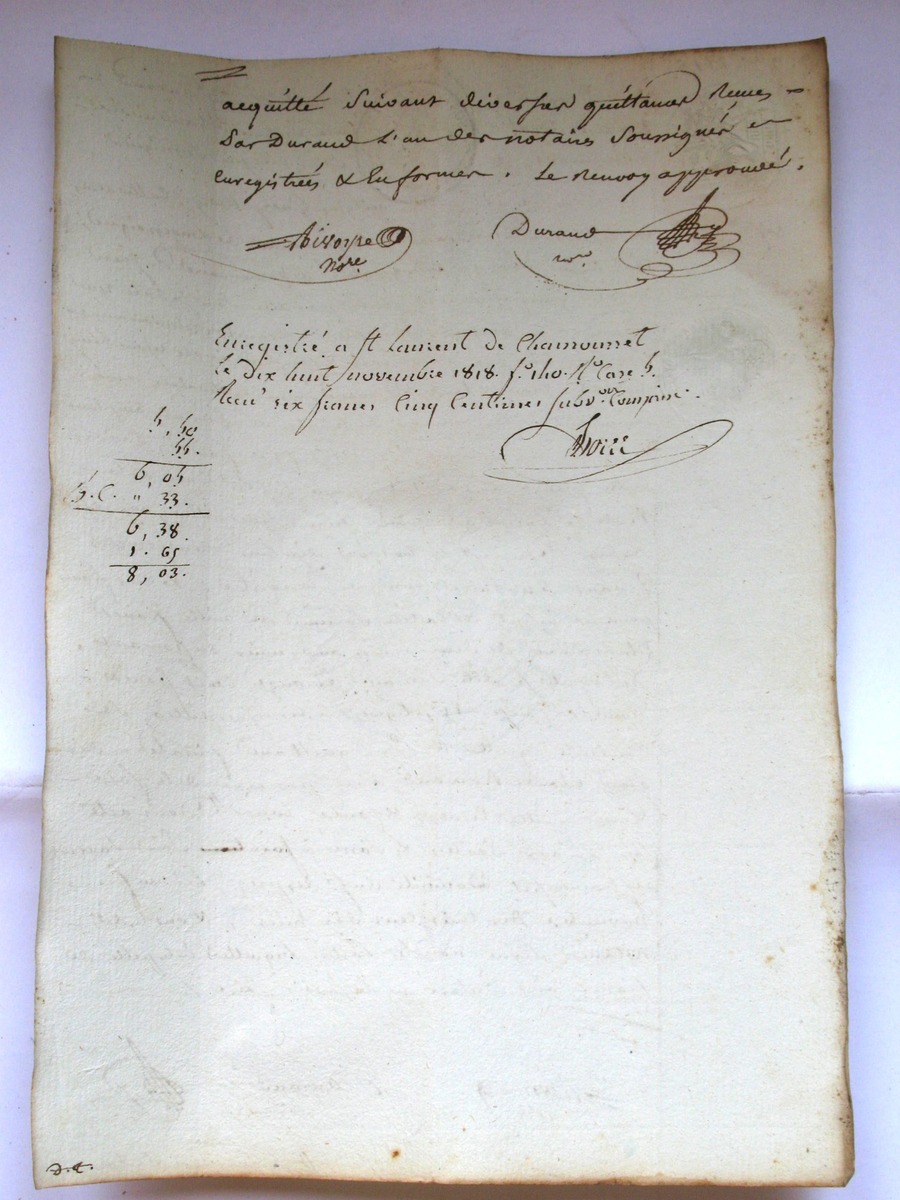 acquitté suivant diverses quittances Reçues
Par Durand l'un des notaires soussignés et
Enregistrées & En formes. Le Renvoy approuvé.
Durand
Nore
nore
Enregistré a St Laurent de Chamousset
Le dix huit novembre 1818. fo 140. Ro Case 5.
Recu six francs Cinq Centimes subvon Comprise.
5, 50
55.
6, 05
5. C. " 33.
6, 38.
1. 65
8, 03.
D.C.